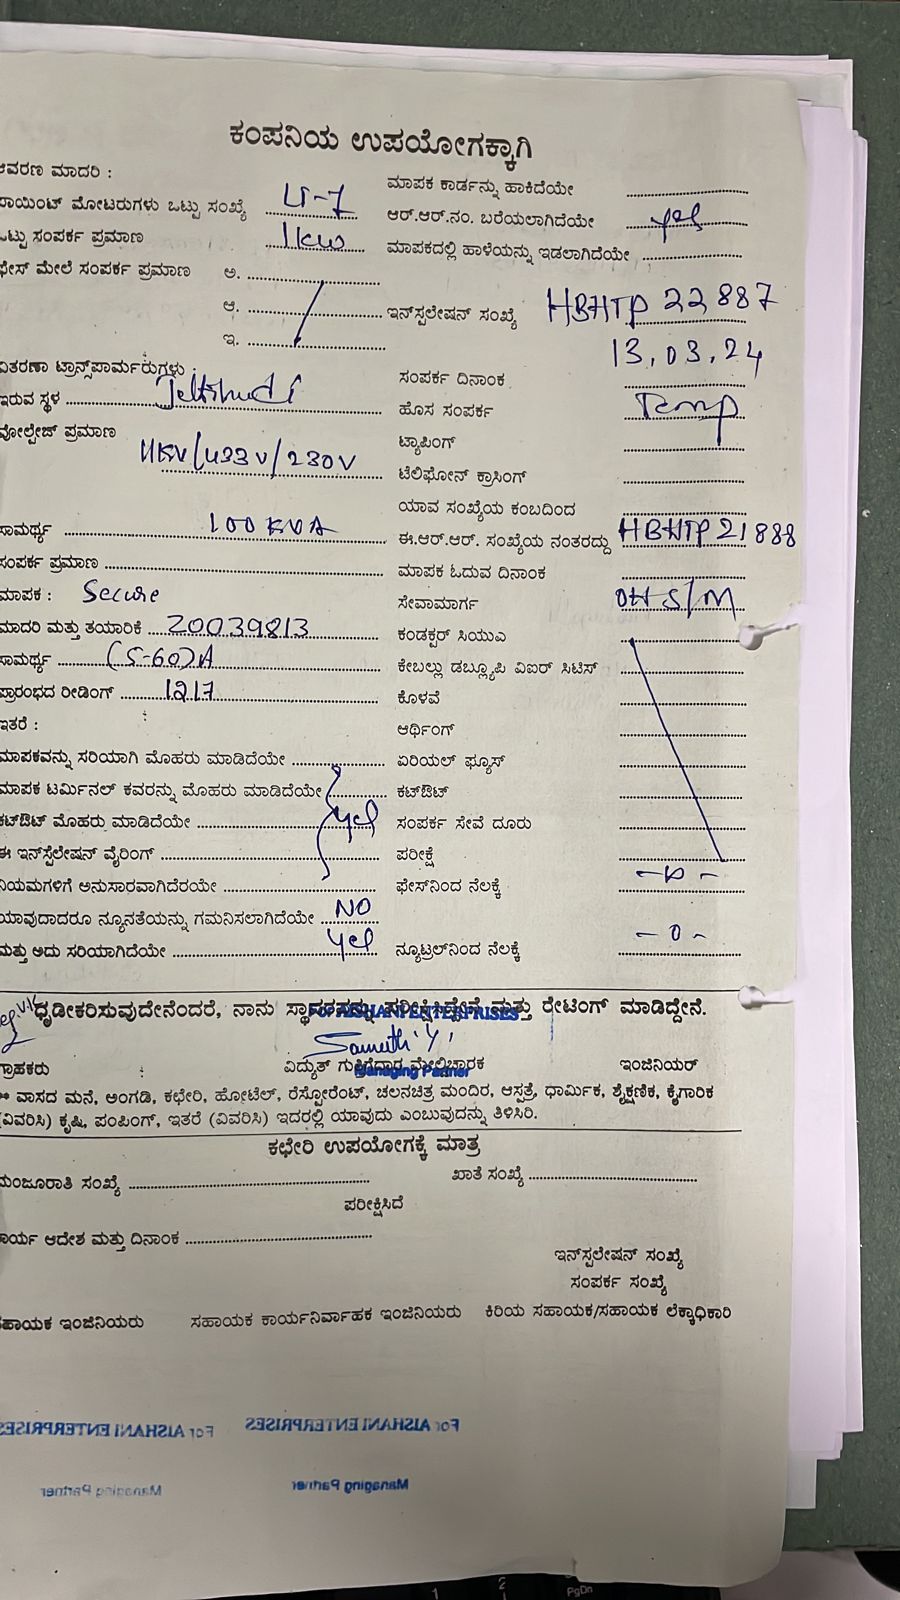 ಕಂಪನಿಯ ಉಪಯೋಗಕ್ಕಾಗಿ
ಆವರಣ ಮಾದರಿ :
ಮಾಪಕ ಕಾರ್ಡನ್ನು ಹಾಕಿದೆಯೇ
ಪಾಯಿಂಟ್ ಮೋಟರುಗಳು ಒಟ್ಟು ಸಂಖ್ಯೆ LT-7
ಆರ್.ಆರ್.ನಂ. ಬರೆಯಲಾಗಿದೆಯೇ yes
ಒಟ್ಟು ಸಂಪರ್ಕ ಪ್ರಮಾಣ 1kw
ಮಾಪಕದಲ್ಲಿ ಹಾಳೆಯನ್ನು ಇಡಲಾಗಿದೆಯೇ
ಫೇಸ್ ಮೇಲೆ ಸಂಪರ್ಕ ಪ್ರಮಾಣ ಅ.
ಆ.
ಇನ್ಸ್ಪಲೇಷನ್ ಸಂಖ್ಯೆ HBHTP 22887
ಇ.
ವಿತರಣಾ ಟ್ರಾನ್ಸ್‌ಪಾರ್ಮರುಗಳು :
ಸಂಪರ್ಕ ದಿನಾಂಕ 13.03.24
ಇರುವ ಸ್ಥಳ
ಹೊಸ ಸಂಪರ್ಕ Temp
ವೋಲ್ಟೇಜ್ ಪ್ರಮಾಣ 11KV/433V/230V
ಟ್ಯಾಪಿಂಗ್
ಟೆಲಿಫೋನ್ ಕ್ರಾಸಿಂಗ್
ಯಾವ ಸಂಖ್ಯೆಯ ಕಂಬದಿಂದ
ಸಾಮರ್ಥ್ಯ 100 KVA
ಈ.ಆರ್.ಆರ್. ಸಂಖ್ಯೆಯ ನಂತರದ್ದು HBHTP21888
ಸಂಪರ್ಕ ಪ್ರಮಾಣ
ಮಾಪಕ ಓದುವ ದಿನಾಂಕ
ಮಾಪಕ : Secure
ಸೇವಾಮಾರ್ಗ OH S/M
ಮಾದರಿ ಮತ್ತು ತಯಾರಿಕೆ 20039813
ಕಂಡಕ್ಟರ್ ಸಿಯುಎ
ಸಾಮರ್ಥ್ಯ (5-60)A
ಕೇಬಲ್ಲು ಡಬ್ಲ್ಯೂಪಿ ವಿಐರ್ ಸಿಟಿಸ್
ಪ್ರಾರಂಭದ ರೀಡಿಂಗ್ 1217
ಕೊಳವೆ
ಇತರೆ :
ಆರ್ಥಿಂಗ್
ಮಾಪಕವನ್ನು ಸರಿಯಾಗಿ ಮೊಹರು ಮಾಡಿದೆಯೇ
ಏರಿಯಲ್ ಫ್ಯೂಸ್
ಮಾಪಕ ಟರ್ಮಿನಲ್ ಕವರನ್ನು ಮೊಹರು ಮಾಡಿದೆಯೇ
ಕಟ್‌ಔಟ್
ಕಟ್‌ಔಟ್ ಮೊಹರು ಮಾಡಿದೆಯೇ yes
ಸಂಪರ್ಕ ಸೇವೆ ದೂರು
ಈ ಇನ್‌ಸ್ಪೆಲೇಷನ್ ವೈರಿಂಗ್
ಪರೀಕ್ಷೆ
ನಿಯಮಗಳಿಗೆ ಅನುಸಾರವಾಗಿದೆರಯೇ
ಫೇಸ್‌ನಿಂದ ನೆಲಕ್ಕೆ -0-
ಯಾವುದಾದರೂ ನ್ಯೂನತೆಯನ್ನು ಗಮನಿಸಲಾಗಿದೆಯೇ NO
ಮತ್ತು ಅದು ಸರಿಯಾಗಿದೆಯೇ yes
ನ್ಯೂಟ್ರಲ್‌ನಿಂದ ನೆಲಕ್ಕೆ -0-
ಧೃಡೀಕರಿಸುವುದೇನೆಂದರೆ, ನಾನು ಸ್ಥಾವರವನ್ನು ಪರೀಕ್ಷಿಸಿದ್ದೇನೆ ಮತ್ತು ರೇಟಿಂಗ್ ಮಾಡಿದ್ದೇನೆ.
For AISHANI ENTERPRISES
ಗ್ರಾಹಕರು ವಿದ್ಯುತ್ ಗುತ್ತಿಗೆದಾರ ಮೇಲ್ವಿಚಾರಕ ಇಂಜಿನಿಯರ್
Managing Partner
ವಾಸದ ಮನೆ, ಅಂಗಡಿ, ಕಛೇರಿ, ಹೋಟೆಲ್, ರೆಸ್ಟೋರೆಂಟ್, ಚಲನಚಿತ್ರ ಮಂದಿರ, ಆಸ್ಪತ್ರೆ, ಧಾರ್ಮಿಕ, ಶೈಕ್ಷಣಿಕ, ಕೈಗಾರಿಕ
(ವಿವರಿಸಿ) ಕೃಷಿ, ಪಂಪಿಂಗ್, ಇತರೆ (ವಿವರಿಸಿ) ಇದರಲ್ಲಿ ಯಾವುದು ಎಂಬುವುದನ್ನು ತಿಳಿಸಿರಿ.
ಕಛೇರಿ ಉಪಯೋಗಕ್ಕೆ ಮಾತ್ರ
ಮಂಜೂರಾತಿ ಸಂಖ್ಯೆ
ಖಾತೆ ಸಂಖ್ಯೆ
ಪರೀಕ್ಷಿಸಿದೆ
ಕಾರ್ಯ ಆದೇಶ ಮತ್ತು ದಿನಾಂಕ
ಇನ್‌ಸ್ಪಲೇಷನ್ ಸಂಖ್ಯೆ
ಸಂಪರ್ಕ ಸಂಖ್ಯೆ
ಸಹಾಯಕ ಇಂಜಿನಿಯರು ಸಹಾಯಕ ಕಾರ್ಯನಿರ್ವಾಹಕ ಇಂಜಿನಿಯರು ಕಿರಿಯ ಸಹಾಯಕ/ಸಹಾಯಕ ಲೆಕ್ಕಾಧಿಕಾರಿ
For AISHANI ENTERPRISES For AISHANI ENTERPRISES
Managing Partner Managing Partner
1 2 PgDn